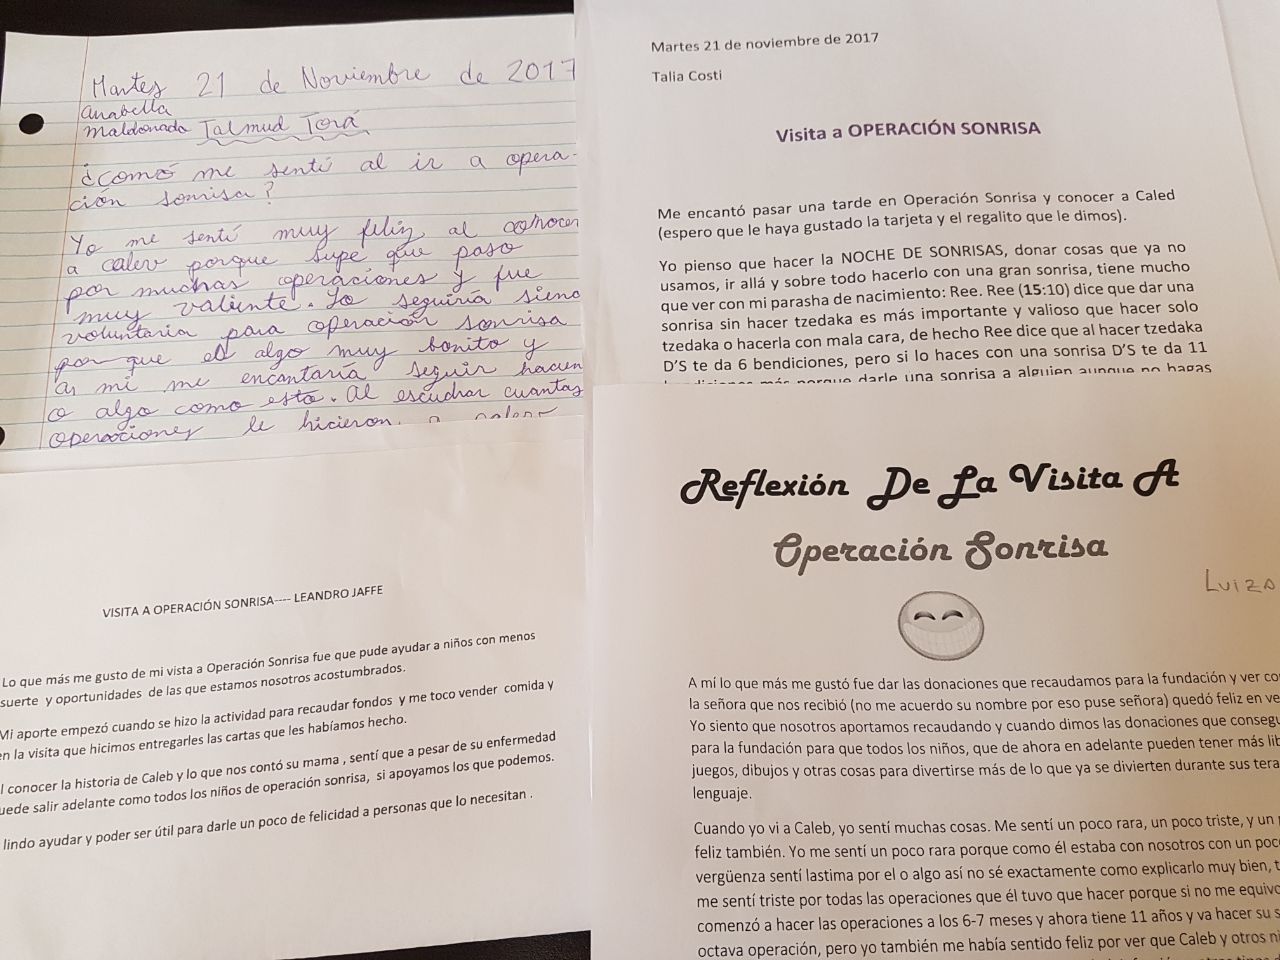 Martes 21 de Noviembre de 2017
Anabella
Maldonado Talmud Torá
¿Comó me sentí al ir a opera-
ción sonrisa?
Yo me sentí muy feliz al conocer
a calev porque supe que paso
por muchas operaciones y fue
muy valiente. Yo seguiría siend
voluntaria para operación sonrisa
por que es algo muy bonito y
a mi me encantaría seguir hacien
o algo como esto. Al escuchar cuantas
operaciones le hicieron a
Martes 21 de noviembre de 2017
Talia Costi
Visita a OPERACIÓN SONRISA
Me encantó pasar una tarde en Operación Sonrisa y conocer a Caled
(espero que le haya gustado la tarjeta y el regalito que le dimos).
Yo pienso que hacer la NOCHE DE SONRISAS, donar cosas que ya no
usamos, ir allá y sobre todo hacerlo con una gran sonrisa, tiene mucho
que ver con mi parasha de nacimiento: Ree. Ree (15:10) dice que dar una
sonrisa sin hacer tzedaka es más importante y valioso que hacer solo
tzedaka o hacerla con mala cara, de hecho Ree dice que al hacer tzedaka
D'S te da 6 bendiciones, pero si lo haces con una sonrisa D'S te da 11
bendiciones más porque darle una sonrisa a alguien aunque no hagas
VISITA A OPERACIÓN SONRISA---- LEANDRO JAFFE
Lo que más me gusto de mi vista a Operación Sonrisa fue que pude ayudar a niños con menos
suerte y oportunidades de las que estamos nosotros acostumbrados.
Mi aporte empezó cuando se hizo la actividad para recaudar fondos y me toco vender comida y
en la visita que hicimos entregarles las cartas que les habíamos hecho.
l conocer la historia de Caleb y lo que nos contó su mama , sentí que a pesar de su enfermedad
uede salir adelante como todos los niños de operación sonrisa, si apoyamos los que podemos.
lindo ayudar y poder ser útil para darle un poco de felicidad a personas que lo necesitan .
Reflexión De La Visita A
Operación Sonrisa
Luiza
A mí lo que más me gustó fue dar las donaciones que recaudamos para la fundación y ver co
la señora que nos recibió (no me acuerdo su nombre por eso puse señora) quedó feliz en ve
Yo siento que nosotros aportamos recaudando y cuando dimos las donaciones que consegu
para la fundación para que todos los niños, que de ahora en adelante pueden tener más lib
juegos, dibujos y otras cosas para divertirse más de lo que ya se divierten durante sus tera
lenguaje.
Cuando yo vi a Caleb, yo sentí muchas cosas. Me sentí un poco rara, un poco triste, y un p
feliz también. Yo me sentí un poco rara porque como él estaba con nosotros con un poc
vergüenza sentí lastima por el o algo así no sé exactamente como explicarlo muy bien, t
me sentí triste por todas las operaciones que él tuvo que hacer porque si no me equivo
comenzó a hacer las operaciones a los 6-7 meses y ahora tiene 11 años y va hacer su s
octava operación, pero yo también me había sentido feliz por ver que Caleb y otros ni